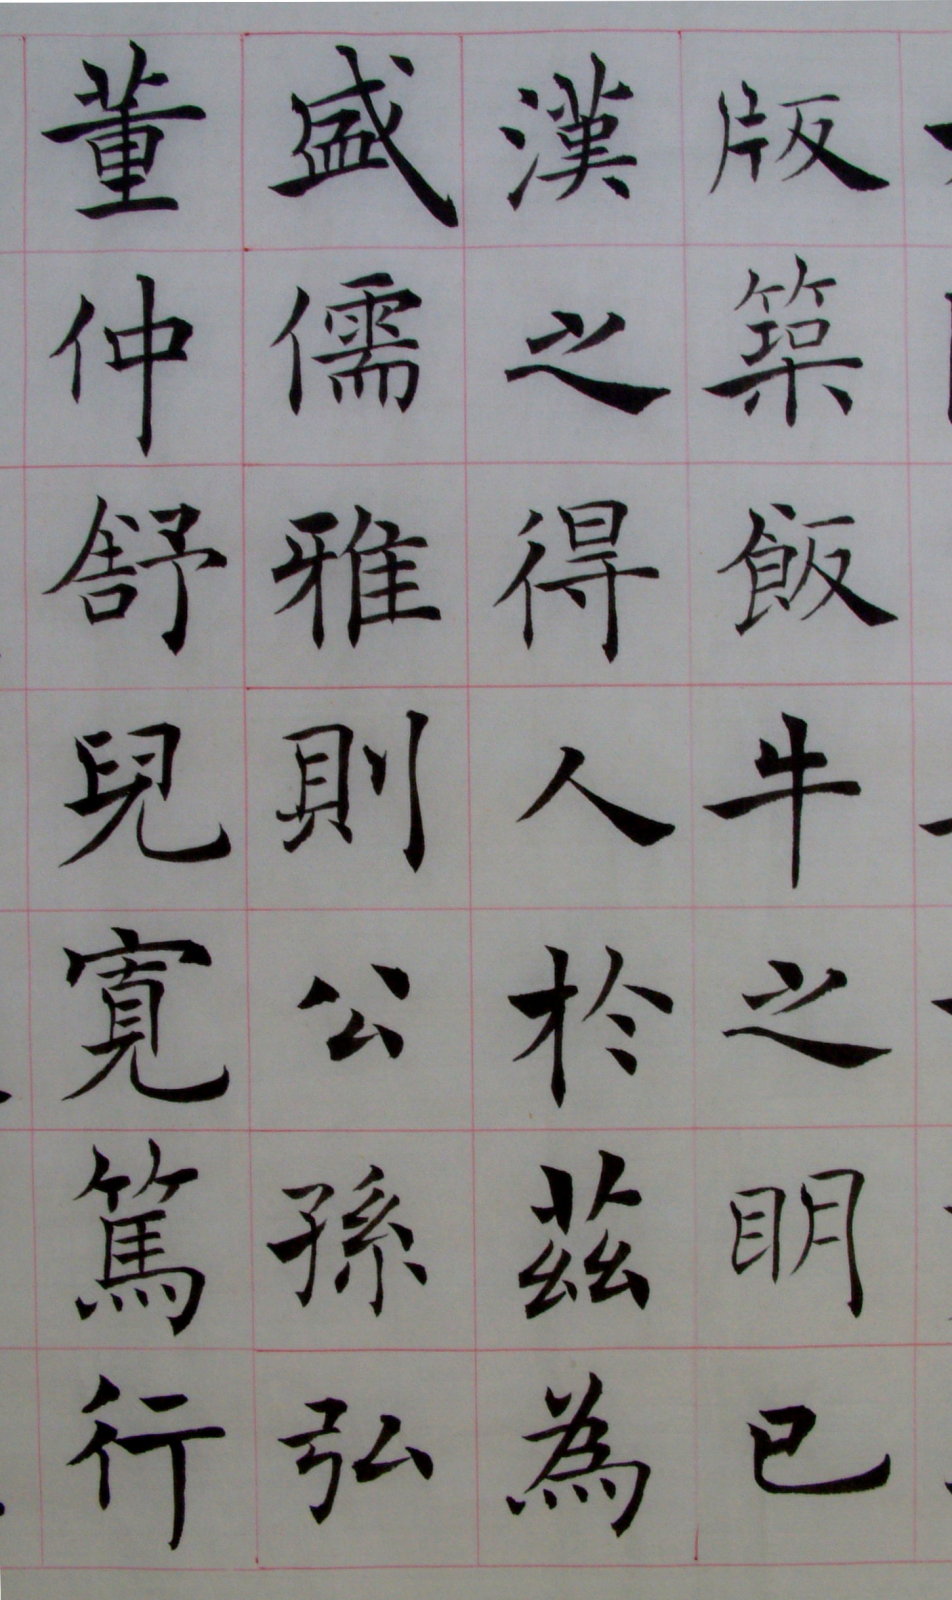 版築飯牛之明已
漢之得人於茲為
盛儒雅則公孫弘
董仲舒兒寬篤行